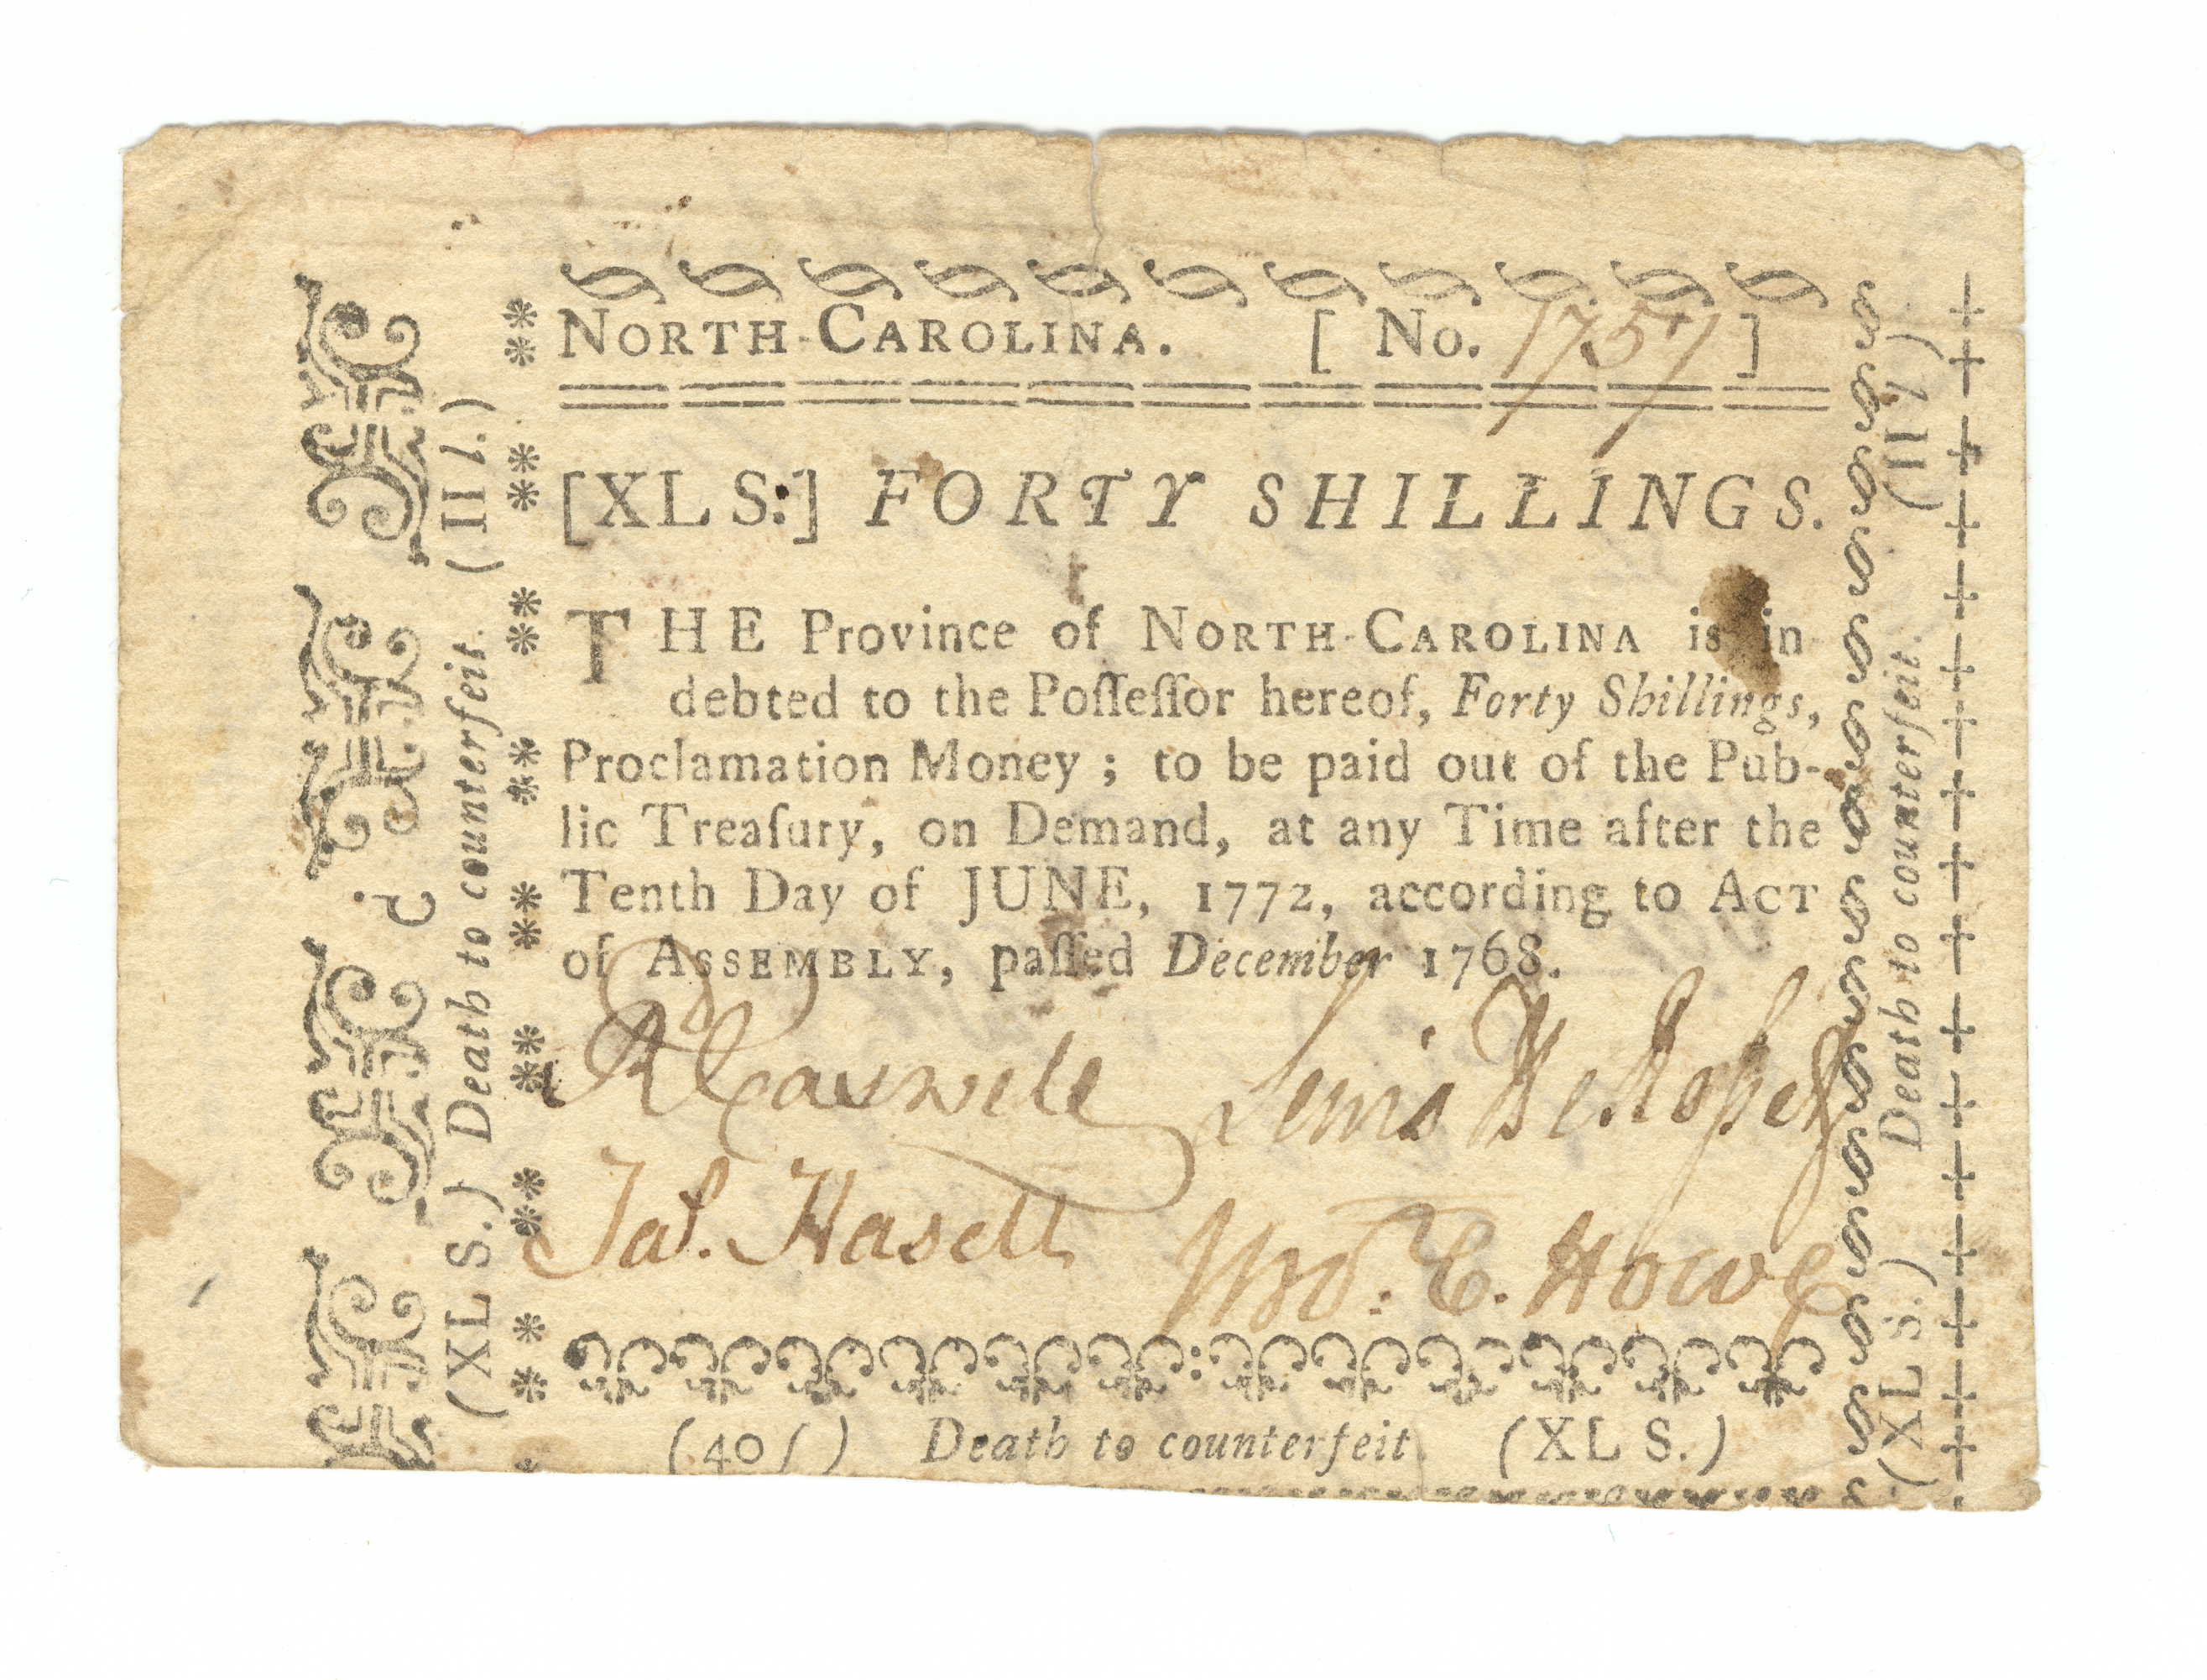 NORTH-CAROLINA. [ No. 1757 ]
[XL S:] FORTY SHILLINGS.
THE Province of NORTH-CAROLINA is in
debted to the Poſſeſſor hereof, Forty Shillings,
Proclamation Money ; to be paid out of the Pub-
lic Treaſury, on Demand, at any Time after the
Tenth Day of JUNE, 1772, according to ACT
of ASSEMBLY, paſſed December 1768.
R Caswell Lewis
Jas. Hasell E. Howe
(40ſ) Death to counterfeit. (XL S.)
(XL S.) Death to counterfeit. (II l.)
(XL S.) Death to counterfeit. (II l)